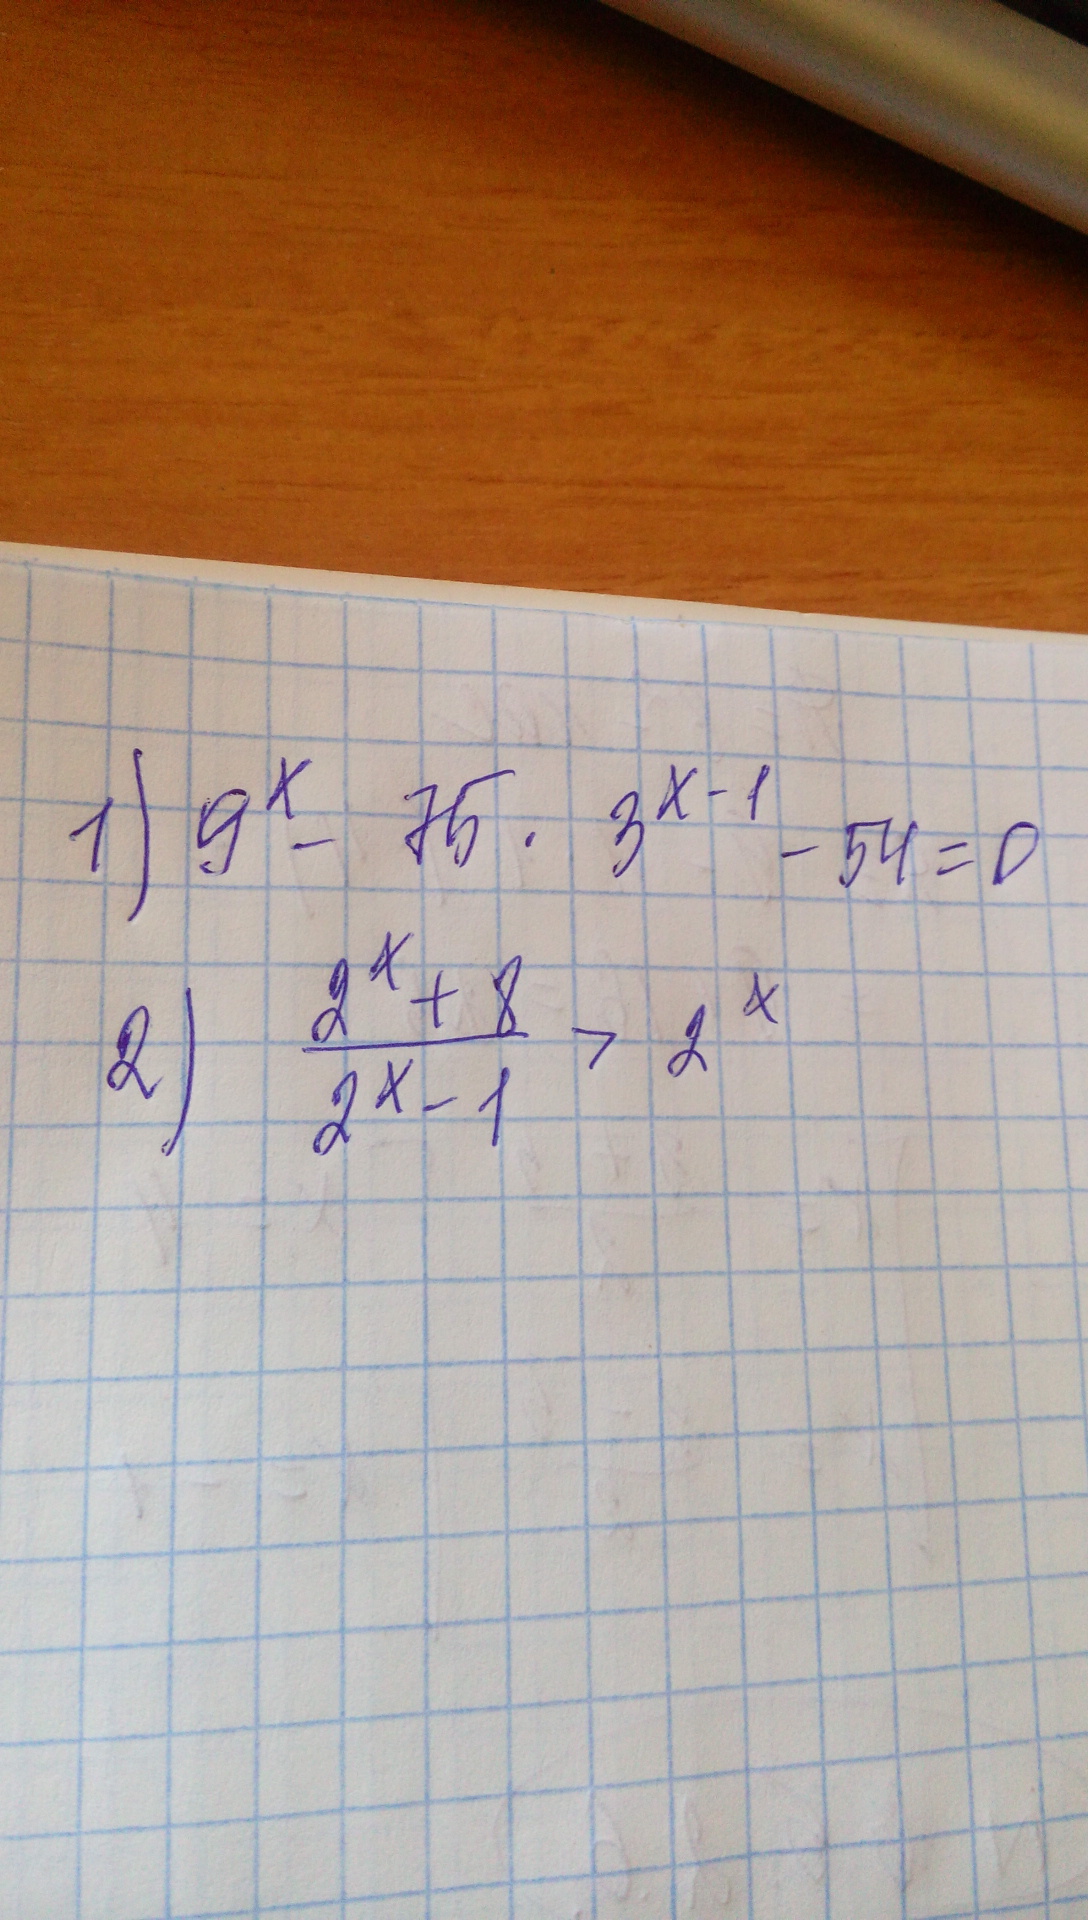 1) 9^x - 75 · 3^(x-1) - 54 = 0
2) (2^x + 8)/(2^x - 1) > 2^x